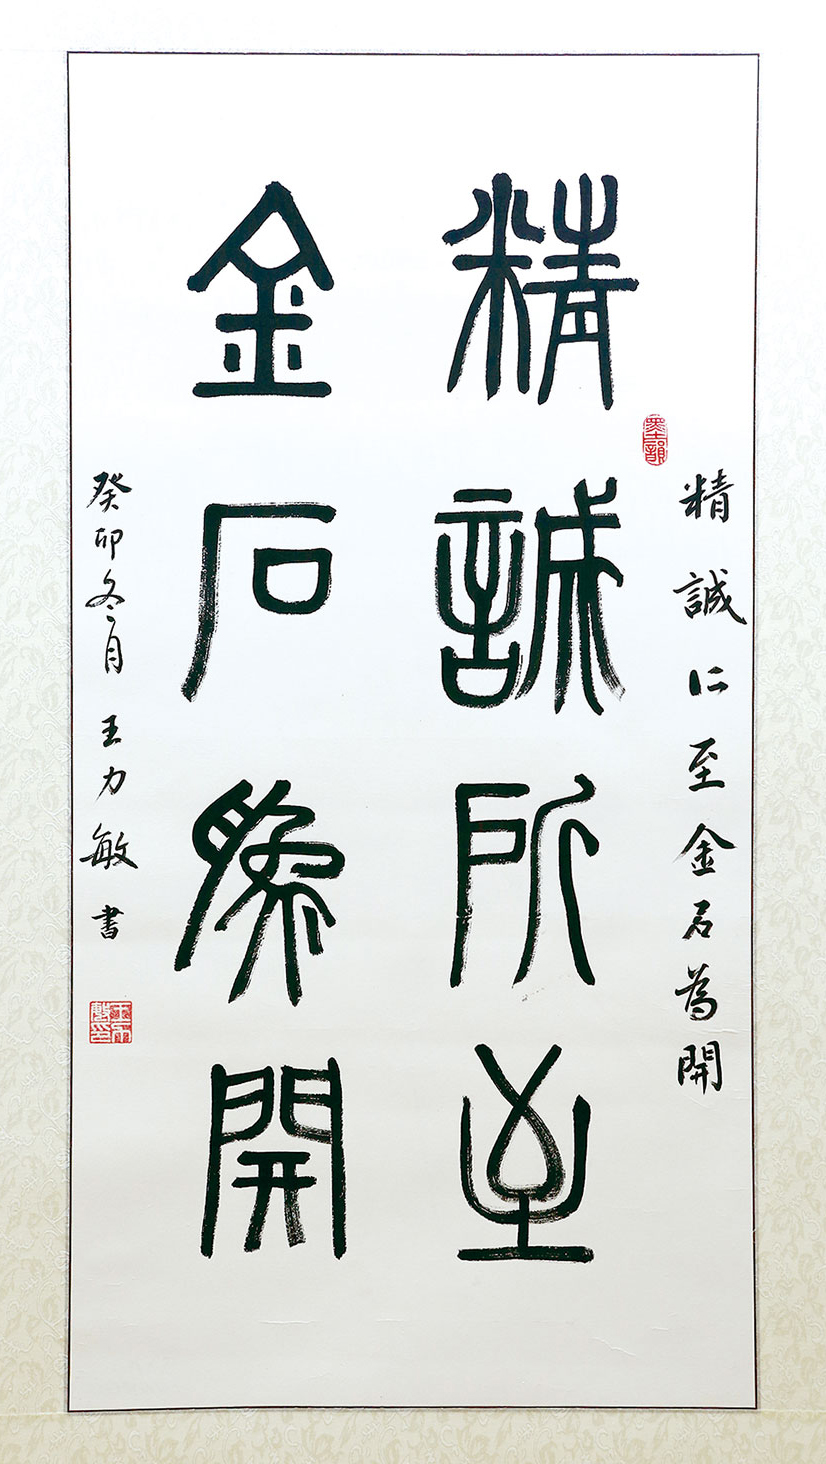 精誠所至金石為開
墨韻
精誠所至
金石為開
癸卯冬月王力敏書